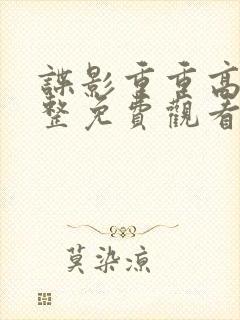 諜影重重高
整免費觀看
莫染涼